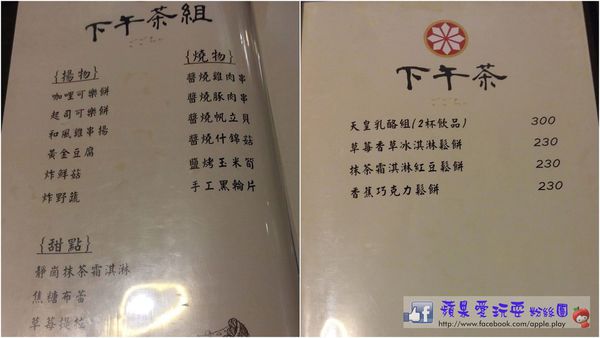 下午茶組
{揚物}
咖哩可樂餅
起司可樂餅
和風雞串揚
黃金豆腐
炸鮮菇
炸野蔬
{燒物}
醬燒雞肉串
醬燒豚肉串
醬燒帆立貝
醬燒什錦菇
鹽烤玉米筍
手工黑輪片
{甜點}
靜崗抹茶霜淇淋
焦糖布蕾
草莓提拉
下午茶
天皇乳酪組(2杯飲品) 300
草莓香草冰淇淋鬆餅 230
抹茶霜淇淋紅豆鬆餅 230
香蕉巧克力鬆餅 230
蘋果愛玩耍 粉絲團
http://www.facebook.com/apple.play